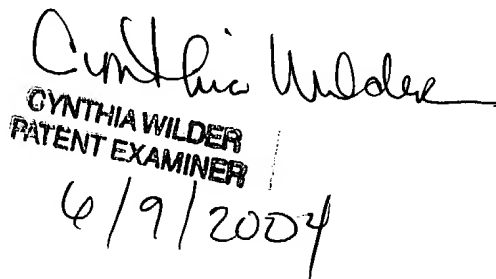 Cynthia Wilder
CYNTHIA WILDER
PATENT EXAMINER
6/9/2004